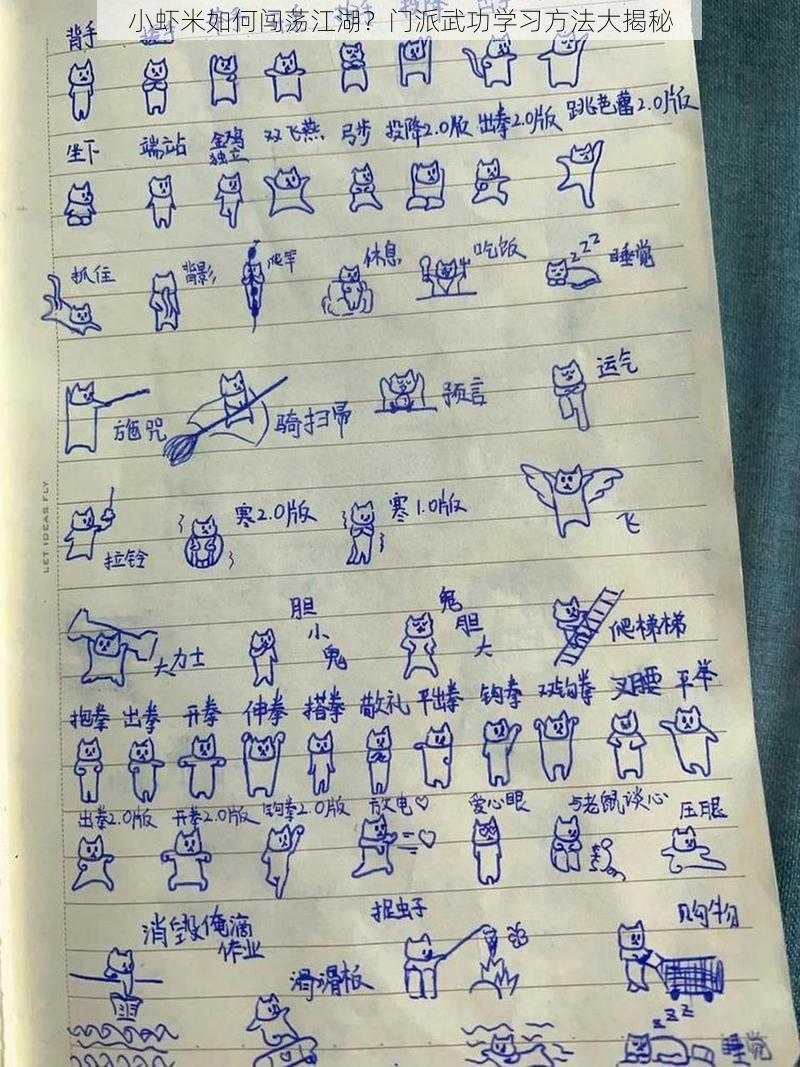 小虾米如何闯荡江湖？门派武功学习方法大揭秘
背手
坐下 端站 金鸡独立 双飞燕 弓步 投降2.0版 出拳2.0版 跳芭蕾2.0版
抓住 背影 爬竿 休息 吃饭 zzz 睡觉
施咒 骑扫帚 预言 运气
拉铃 寒2.0版 寒1.0版 飞
LET IDEAS FLY
大力士 胆小鬼 鬼胆大 爬梯梯
抱拳 出拳 开拳 伸拳 搭拳 敬礼 平出拳 钩拳 双钩拳 叉腰 平举
出拳2.0版 开拳2.0版 钩拳2.0版 放电♡ 爱心眼 与老鼠谈心 压腿
消毁俺滴作业 滑滑板 捉虫子 购物
zzz 睡觉